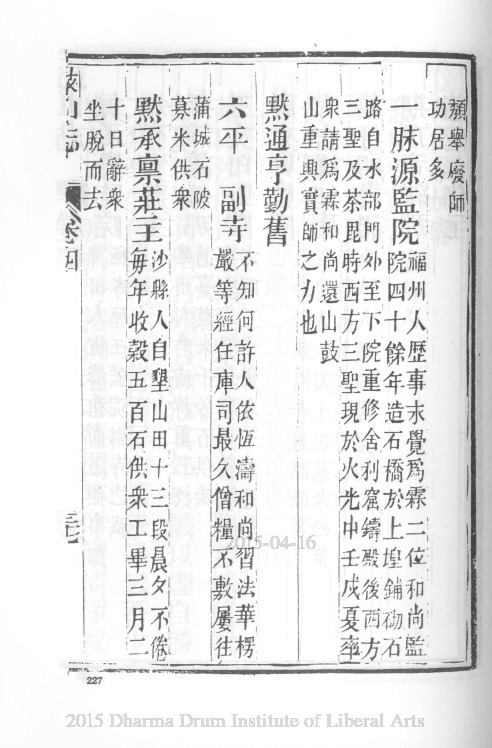 頹舉廢師
功居多
一脉源監院 福州人歷事永覺爲霖二位和尚監
院四十餘年造石橋於上埕鋪砌石
路自水部門外至下院重修舍利窟鑄殿後西方
三聖及茶毘時西方三聖現於火光中壬戌夏率
衆請爲霖和尚還山鼓
山重興實師之力也
默通亨勤舊
六平 副寺 不知何許人依恆濤和尚習法華楞
嚴等經任庫司最久僧糧不敷屢往
蒲城石陂
募米供衆
默承禀莊主 沙縣人自墾山田十三段晨夕不倦
每年收穀五百石供衆工畢三月二
十日辭衆
坐脫而去
山志 卷四
227
2015-04-16
2015 Dharma Drum Institute of Liberal Arts